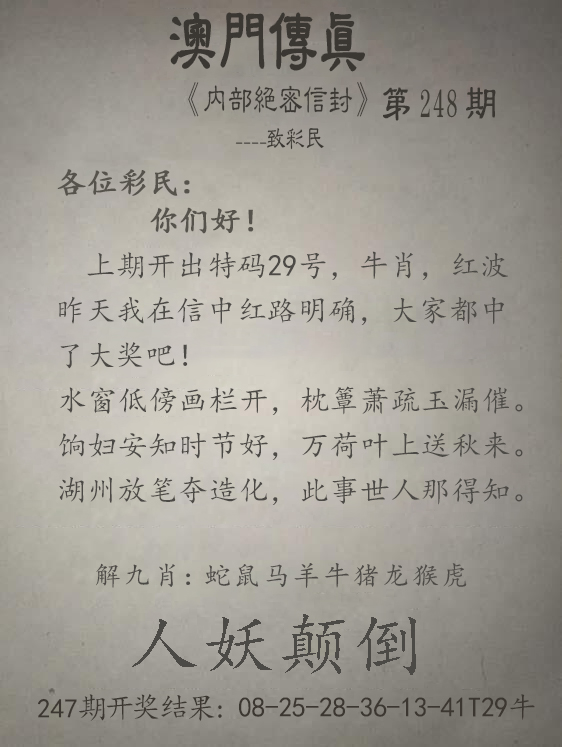 澳門傳眞
《内部絕密信封》第248期
----致彩民
各位彩民：
你们好！
上期开出特码29号，牛肖，红波
昨天我在信中红路明确，大家都中
了大奖吧！
水窗低傍画栏开，枕簟萧疏玉漏催。
饷妇安知时节好，万荷叶上送秋来。
湖州放笔夺造化，此事世人那得知。
解九肖：蛇鼠马羊牛猪龙猴虎
人妖颠倒
247期开奖结果：08-25-28-36-13-41T29牛